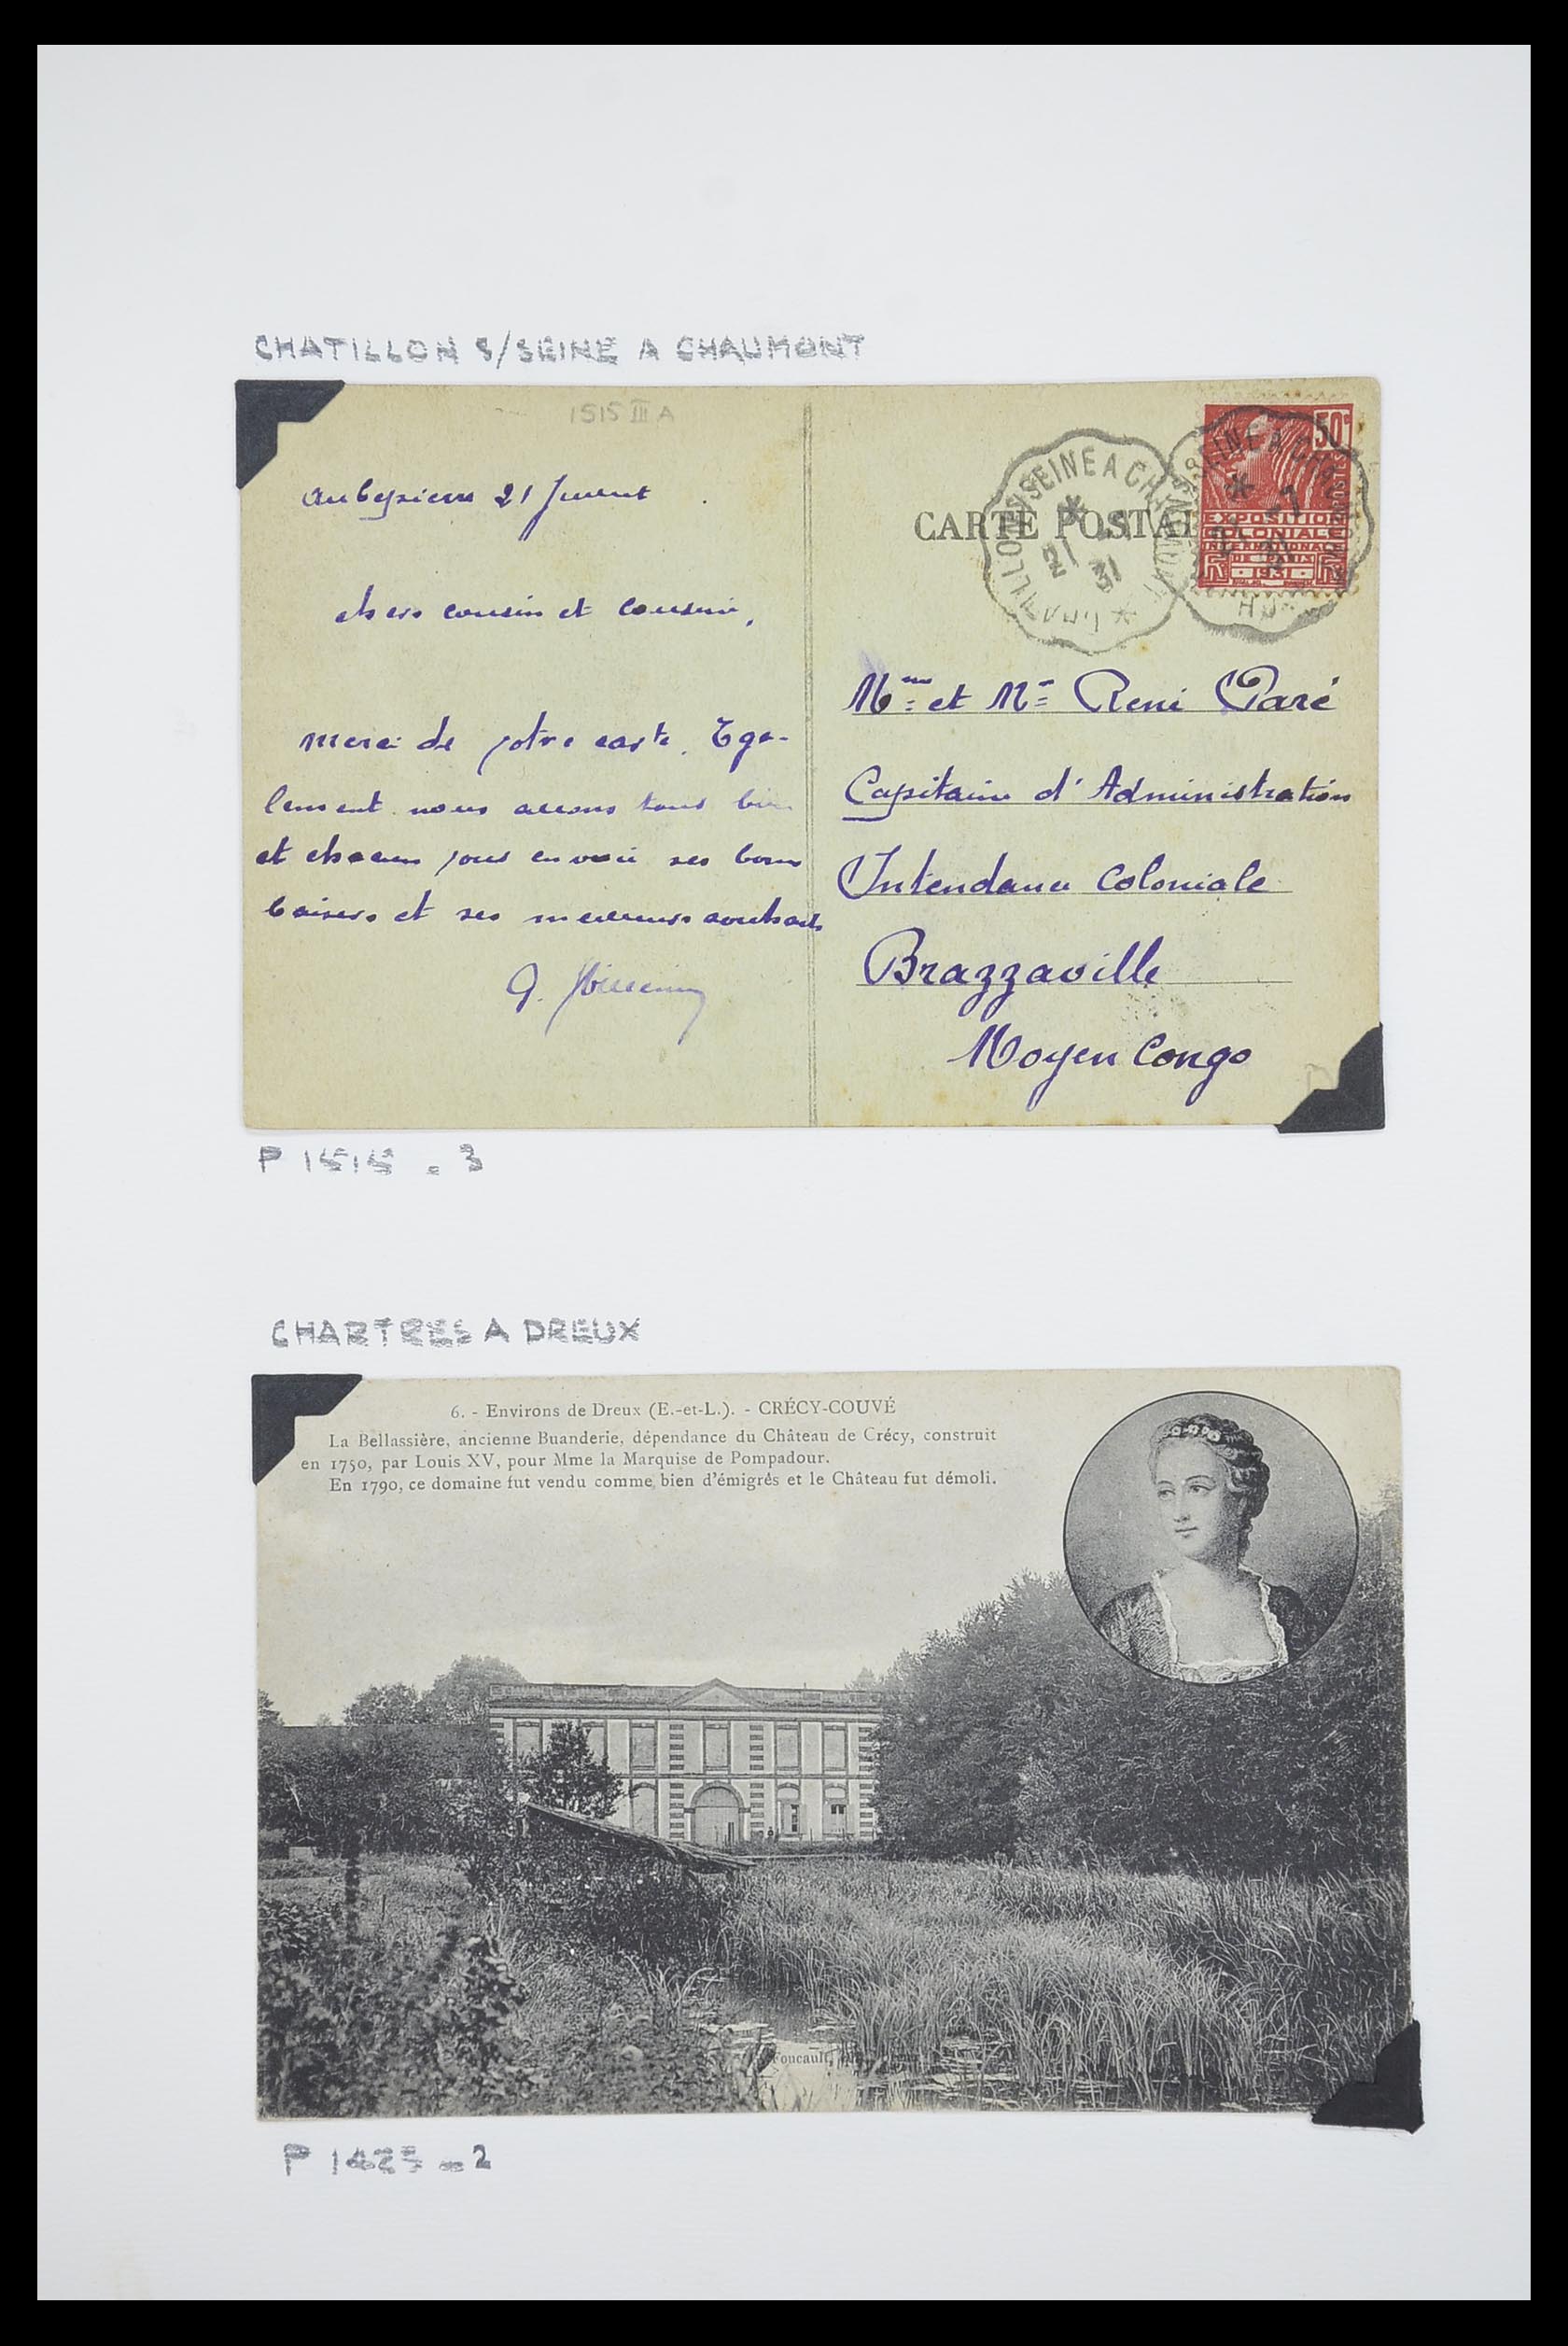 CHATILLON S/SEINE A CHAUMONT
1515 III A
Aubepierre 21 Juillet
chers cousin et cousine,
merci de votre carte. Ega-
lement nous allons tous bien
et chacun vous envoie ses bons
baisers et ses meilleurs souhaits
CARTE POSTALE
CHATILLON S SEINE A CHAUMONT
21 -7
31
50c
POSTES
EXPOSITION
COLONIALE
INTERNATIONALE
DE PARIS
1931
RF
Mme et Mr René Paré
Capitaine d'Administration
Intendance Coloniale
Brazzaville
Moyen Congo
P 1515 - 3
CHARTRES A DREUX
6. - Environs de Dreux (E.-et-L.). - CRÉCY-COUVÉ
La Bellassière, ancienne Buanderie, dépendance du Château de Crécy, construit
en 1750, par Louis XV, pour Mme la Marquise de Pompadour.
En 1790, ce domaine fut vendu comme bien d'émigrés et le Château fut démoli.
Foucault
P 1425 - 2